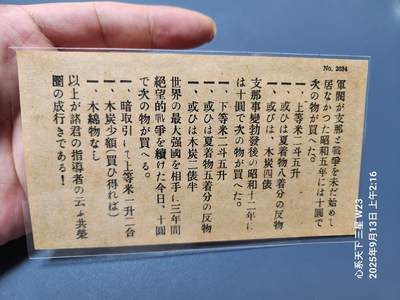 No. 2034
軍閥が支那と戰爭を未だ始めて
居なかつた昭和五年には十圓で
次の物が買へた。
一、上等米二斗五升
一、或ひは夏着物八着分の反物
一、或ひは、木炭四俵
支那事變勃發後の昭和十二年に
は十圓で次の物が買へた。
一、下等米二斗五升
一、或ひは夏着物五着分の反物
一、或ひは木炭二俵半
世界の最大强國を相手に三年間
絕望的戰爭を續けた今日、十圓
で次の物が買へる。
一、暗取引にて上等米一升二合
一、木炭少額(買ひ得れば)
一、木綿物なし
以上が諸君の指導者の云ふ共榮
圈の成行きである!
心系天下 三星 W23
2025年9月13日 上午2:16